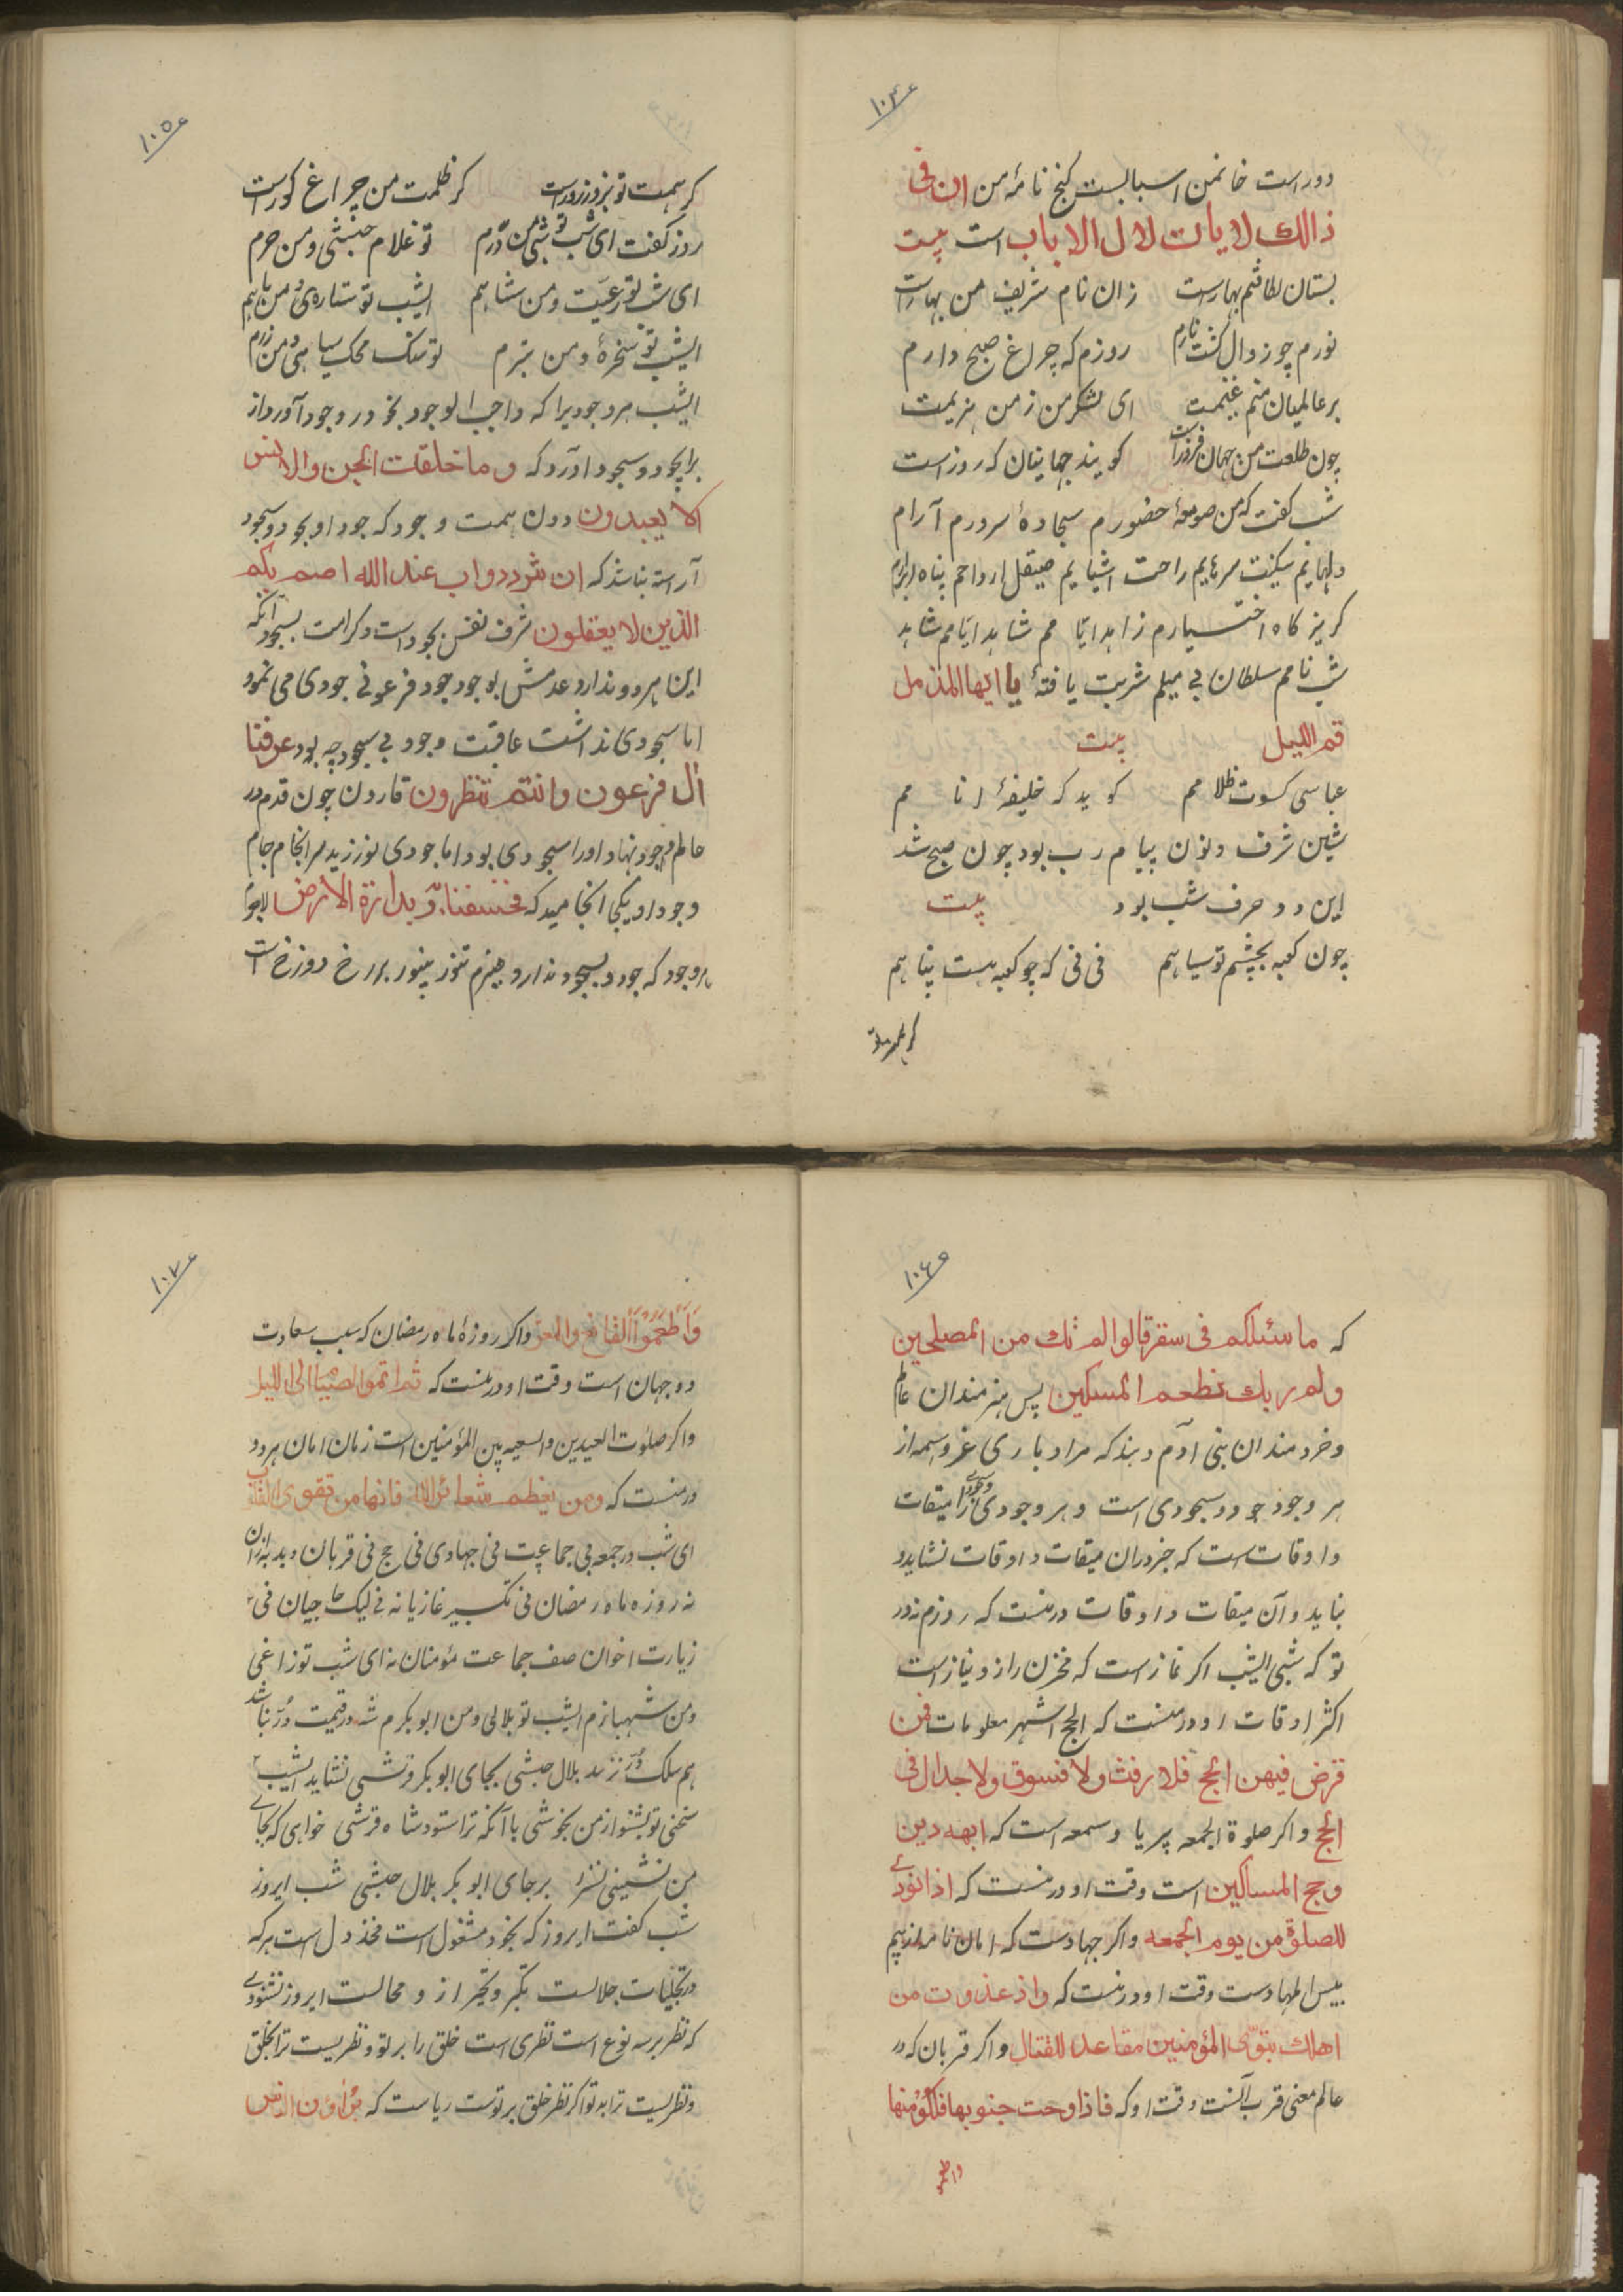 ۱۰۴
دور است خانمن اسبابست کنج نامهٔ من ان فی
ذالك لایات لاٰل الالباب است بیت
بستان لطافتم بهار است زان نام شریف من بهار است
نورم چو زوال کشت نارم روزم که چراغ صبح دارم
بر عالمیان منم غنیمت ای لشکر من ز من هزیمت
چون طلعت من جهان فروز است کویند جهانیان که روز است
شب کفت که من صومعهٔ حضورم سجادهٔ سرورم آرام
دلهایم سکینت سرهایم راحت اشیایم صیقل ارواحم پناه
کریز کاه اختیارم زاهد ایامم شاهد ایامم شاهد
شب نامم سلطان بی میلم شربت یافتهٔ یا ایها المذمل
قم اللیل بیت
عباسی کسوت ظلامم کوید که خلیفهٔ انامم
شین شرف و نون پیام رب بود چون صبح شد
این دو حرف شب بود بیت
چون کعبه بچشم تو سیاهم نی نی که چو کعبه هست پناهم
کر همت تو
۱۰۵
کر همت تو بزور زور است کر ظلمت من چراغ کور است
روز کفت ای شب تو شبی من درم تو غلام حبشی و من حرم
ای شب تو رعیت و من شاهم ایشب تو ستاره‌ی و من ماهم
ایشب تو سخرهٔ و من بترم تو سنک محک سیاهی و من زرم
ایشب هر وجودیرا که واجب الوجود بخود در وجود آورد از
برای جود و سجود آورد که وما خلقت الجن والانس
الا یعبدون دون همت وجود که جود او بجود و سجود
آراسته نباشد که ان شر ددواب عند الله اصم بکم
الذین لا یعقلون شرف نفس بجود است و کرامت بسجود آنکه
این هر دو ندارد عدمش به وجود فرعونی جودی می نمود
اما سجودی نداشت عاقبت وجود بی سجود چه بود غرقنا
اٰل فرعون وانتم تنظرون قارون چون قدم در
عالم وجود نهاد او را سجودی بود اما جودی نورزید سرانجام جام
وجود او بیکی انجامید که فخسفنا به و بداره الارض
هر وجود که جود و سجود ندارد هیزم تنور برزخ دوزخ است
۱۰۶
که ما سئلکم فی سقر قالوا لم نك من المصلحین
ولم ربك نطعم المسکین پس هنرمندان عالم
و خردمندان بنی آدم دیدند که مراد باری عز و اسمه از
هر وجود جود و سجودی است و هر وجودی را میقات
و اوقات است که جز در ان میقات و اوقات نشاید و
نباید و آن میقات و اوقات در منست که روزم نه در
تو که شبی ایشب اکر نماز است که مخزن راز و نیاز است
اکثر اوقات او در منست که الحج اشهر معلومات فمن
فرض فیهن الحج فلا رفث ولا فسوق ولا جدال فی
الحج و اکر صلوة الجمعه پر یا و سمعه است که ابهه دین
وحج المساکین است وقت او در منست که اذا نودی
للصلوة من یوم الجمعه و اکر جهاد است که امان نامه از بیم
بیس المهاد ست وقت او در منست که واذ غدوت من
اهلك تبوّی المؤمنین مقاعد للقتال و اکر قربان که در
عالم معنی قرب آنست وقت او که فاذا وجبت جنوبها فکلوا منها
واطعموا
۱۰۷
وَاَطعَمُوا القانع والمعتر و اکر روزهٔ ماه رمضان که سبب سعادت
دو جهان است وقت او در منست که ثم اتموا الصیام الی اللیل
و اکر صلوت العیدین والسعیه بین المؤمنین است زمان امان هر دو
در منست که ومن یعظم شعائر الله فانها من تقوی القلوب
ای شب در جمعه بی جماعت نی جهادی نی حج نی قربان و بدتر از ان
نه روزه ماه رمضان نی تکبیر غازیانه نی لبیک حاجیان نی
زیارت اخوان صف جماعت مؤمنان نه ای شب تو زاغی
و من شهبازم ایشب تو بلالی و من ابو بکرم شبه در قیمت دُر نباشد
هم سلک دُر نزند بلال حبشی بجای ابوبکر قرشی نشاید ایشب
سخنی تو بشنو از من بخوشی با آنکه ترا ستود شاه قرشی خواهی که بجای
من نشینی نسزد بر جای ابو بکر بلال حبشی شب ایروز
شب کفت ایروز که بخود مشغول است مخذول است هر که
در تجلیات جلالست تکبر و تجبر از و محالست ایروز نشنودی
که نظر بر سه نوع است نظری است خلق را بر تو و نظریست ترا بخلق
و نظریست ترا به تو اکر نظر خلق بر توست ریاست که یراؤن الناس